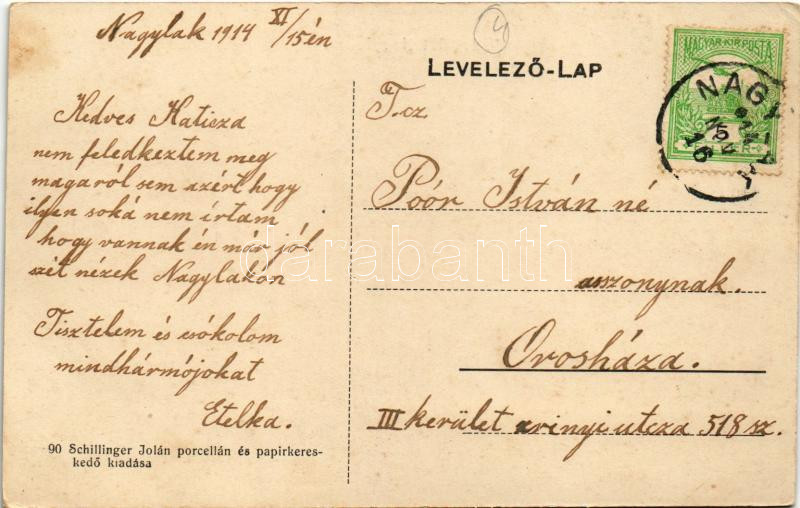 Nagylak 1914 XI/15én
Kedves Katicza
nem feledkeztem meg
magaról sem azért hogy
ilyen soká nem írtam
hogy vannak én már jól
szét nézek Nagylakon
Tisztelem és csókolom
mindhármójokat
Etelka.
90 Schillinger Jolán porcellán és papirkeres-
kedő kiadása
LEVELEZŐ-LAP
T.cz
Poór István né
asszonynak.
Orosháza.
III kerület zrinyi utcza 518 sz.
MAGYAR KIR. POSTA
NAGY
darabanth